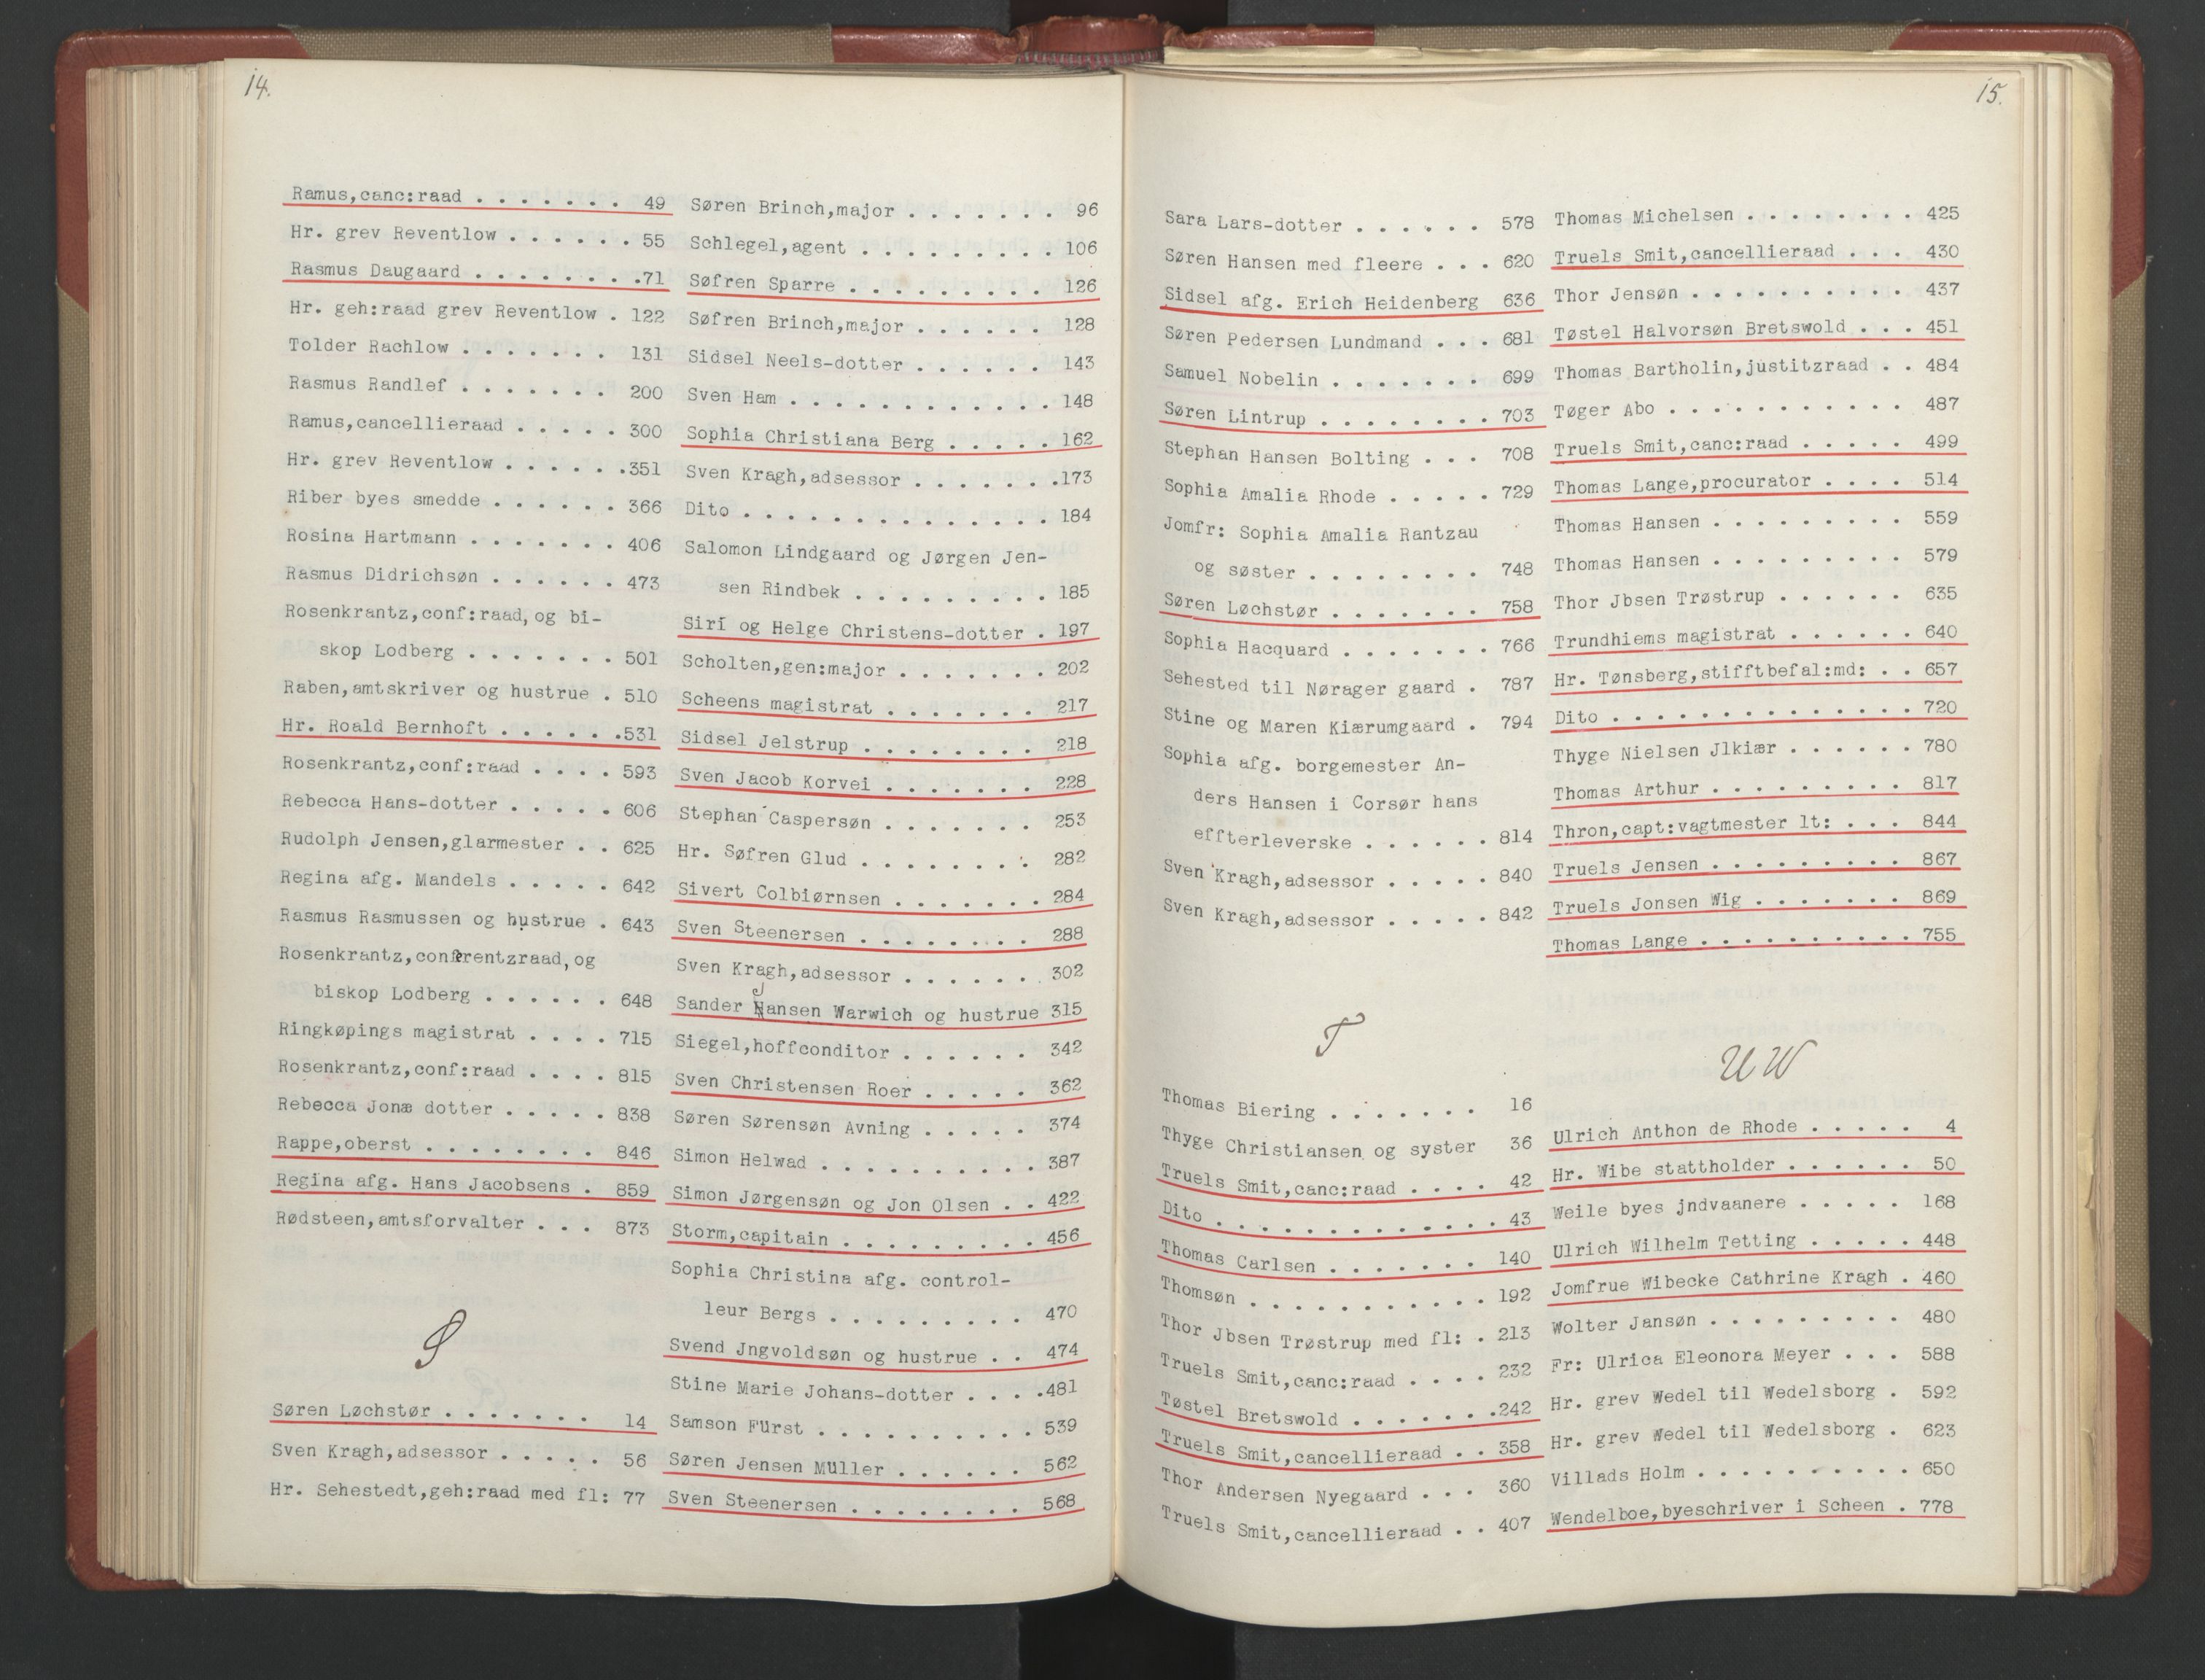 14.
Ramus,canc:raad . . . . . . . 49
Hr. grev Reventlow . . . . . . 55
Rasmus Daugaard . . . . . . . .71
Hr. geh:raad grev Reventlow . 122
Tolder Rachlow . . . . . . . 131
Rasmus Randlef . . . . . . . 200
Ramus,cancellieraad . . . . . 300
Hr. grev Reventlow . . . . . .351
Riber byes smedde . . . . . . 366
Rosina Hartmann . . . . . . . 406
Rasmus Didrichsøn . . . . . . 473
Rosenkrantz,conf:raad,og bi-
skop Lodberg . . . . . . . 501
Raben,amtskriver og hustrue . 510
Hr. Roald Bernhoft . . . . . .531
Rosenkrantz,conf:raad . . . . 593
Rebecca Hans-dotter . . . . . 606
Rudolph Jensen,glarmester . . 625
Regina afg. Mandels . . . . . 642
Rasmus Rasmussen og hustrue . 643
Rosenkrantz,conferentzraad,og
biskop Lodberg . . . . . . 648
Ringkøpings magistrat . . . . 715
Rosenkrantz,conf:raad . . . . 815
Rebecca Jonæ dotter . . . . . 838
Rappe,oberst . . . . . . . . 846
Regina afg. Hans Jacobsens . 859
Rødsteen,amtsforvalter . . . 873
S
Søren Løchstør . . . . . . . 14
Sven Kragh,adsessor . . . . . 56
Hr. Sehestedt,geh:raad med fl: 77
Søren Brinch,major . . . . . . . 96
Schlegel,agent . . . . . . . . . 106
Søfren Sparre . . . . . . . . . 126
Søfren Brinch,major . . . . . . 128
Sidsel Neels-dotter . . . . . . 143
Sven Ham . . . . . . . . . . . . 148
Sophia Christiana Berg . . . . . 162
Sven Kragh,adsessor . . . . . . .173
Dito . . . . . . . . . . . . . . 184
Salomon Lindgaard og Jørgen Jen-
sen Rindbek . . . . . . . . . 185
Siri og Helge Christens-dotter . 197
Scholten,gen:major . . . . . . . 202
Scheens magistrat . . . . . . . 217
Sidsel Jelstrup . . . . . . . . 218
Sven Jacob Korvei . . . . . . . 228
Stephan Caspersøn . . . . . . . 253
Hr. Søfren Glud . . . . . . . . 282
Sivert Colbiørnsen . . . . . . . 284
Sven Steenersen . . . . . . . . 288
Sven Kragh,adsessor . . . . . . 302
Sander Jansen Warwich og hustrue 315
Siegel,hoffconditor . . . . . . 342
Sven Christensen Roer . . . . . 362
Søren Sørensøn Avning . . . . . 374
Simon Helwad . . . . . . . . . . 387
Simon Jørgensøn og Jon Olsen . . 422
Storm,capitain . . . . . . . . . 456
Sophia Christina afg. control-
leur Bergs . . . . . . . . . 470
Svend Jngvoldsøn og hustrue . . 474
Stine Marie Johans-dotter . . . .481
Samson Fürst . . . . . . . . . . 539
Søren Jensen Müller . . . . . . 562
Sven Steenersen . . . . . . . . 568
15.
Sara Lars-dotter . . . . . . 578
Søren Hansen med fleere . . . 620
Sidsel afg. Erich Heidenberg 636
Søren Pedersen Lundmand . . . 681
Samuel Nobelin . . . . . . . 699
Søren Lintrup . . . . . . . . 703
Stephan Hansen Bolting . . . 708
Sophia Amalia Rhode . . . . . 729
Jomfr: Sophia Amalia Rantzau
og søster . . . . . . . . 748
Søren Løchstør . . . . . . . 758
Sophia Hacquard . . . . . . . 766
Sehested til Nørager gaard . 787
Stine og Maren Kiærumgaard . 794
Sophia afg. borgemester An-
ders Hansen i Corsør hans
effterleverske . . . . . . 814
Sven Kragh,adsessor . . . . . 840
Sven Kragh,adsessor . . . . . 842
T
Thomas Biering . . . . . . . 16
Thyge Christiansen og syster 36
Truels Smit,canc:raad . . . . 42
Dito . . . . . . . . . . . . . 43
Thomas Carlsen . . . . . . . 140
Thomsøn . . . . . . . . . . . 192
Thor Jbsen Trøstrup med fl: . 213
Truels Smit,canc:raad . . . . 232
Tøstel Bretswold . . . . . . .242
Truels Smit,cancellieraad . . 358
Thor Andersen Nyegaard . . . 360
Truels Smit,cancellieraad . . 407
Thomas Michelsen . . . . . . . . . 425
Truels Smit,cancellieraad . . . 430
Thor Jensøn . . . . . . . . . . 437
Tøstel Halvorsøn Bretswold . . . 451
Thomas Bartholin,justitzraad . . 484
Tøger Abo . . . . . . . . . . . 487
Truels Smit,canc:raad . . . . . 499
Thomas Lange,procurator . . . . 514
Thomas Hansen . . . . . . . . . 559
Thomas Hansen . . . . . . . . . 579
Thor Jbsen Trøstrup . . . . . . 635
Trundhiems magistrat . . . . . . 640
Hr. Tønsberg,stifftbefal:md: . . 657
Dito . . . . . . . . . . . . . . 720
Thyge Nielsen Jlkiær . . . . . . 780
Thomas Arthur . . . . . . . . . 817
Thron,capt:vagtmester lt: . . . 844
Truels Jensen . . . . . . . . . 867
Truels Jonsen Wig . . . . . . . 869
Thomas Lange . . . . . . . . . . 755
U W
Ulrich Anthon de Rhode . . . . . 4
Hr. Wibe stattholder . . . . . . 50
Weile byes jndvaanere . . . . . 168
Ulrich Wilhelm Tetting . . . . . 448
Jomfrue Wibecke Cathrine Kragh . 460
Wolter Jansøn . . . . . . . . . 480
Fr: Ulrica Eleonora Meyer . . . 588
Hr. grev Wedel til Wedelsborg . 592
Hr. grev Wedel til Wedelsborg . 623
Villads Holm . . . . . . . . . . 650
Wendelboe,byeschriver i Scheen . 778